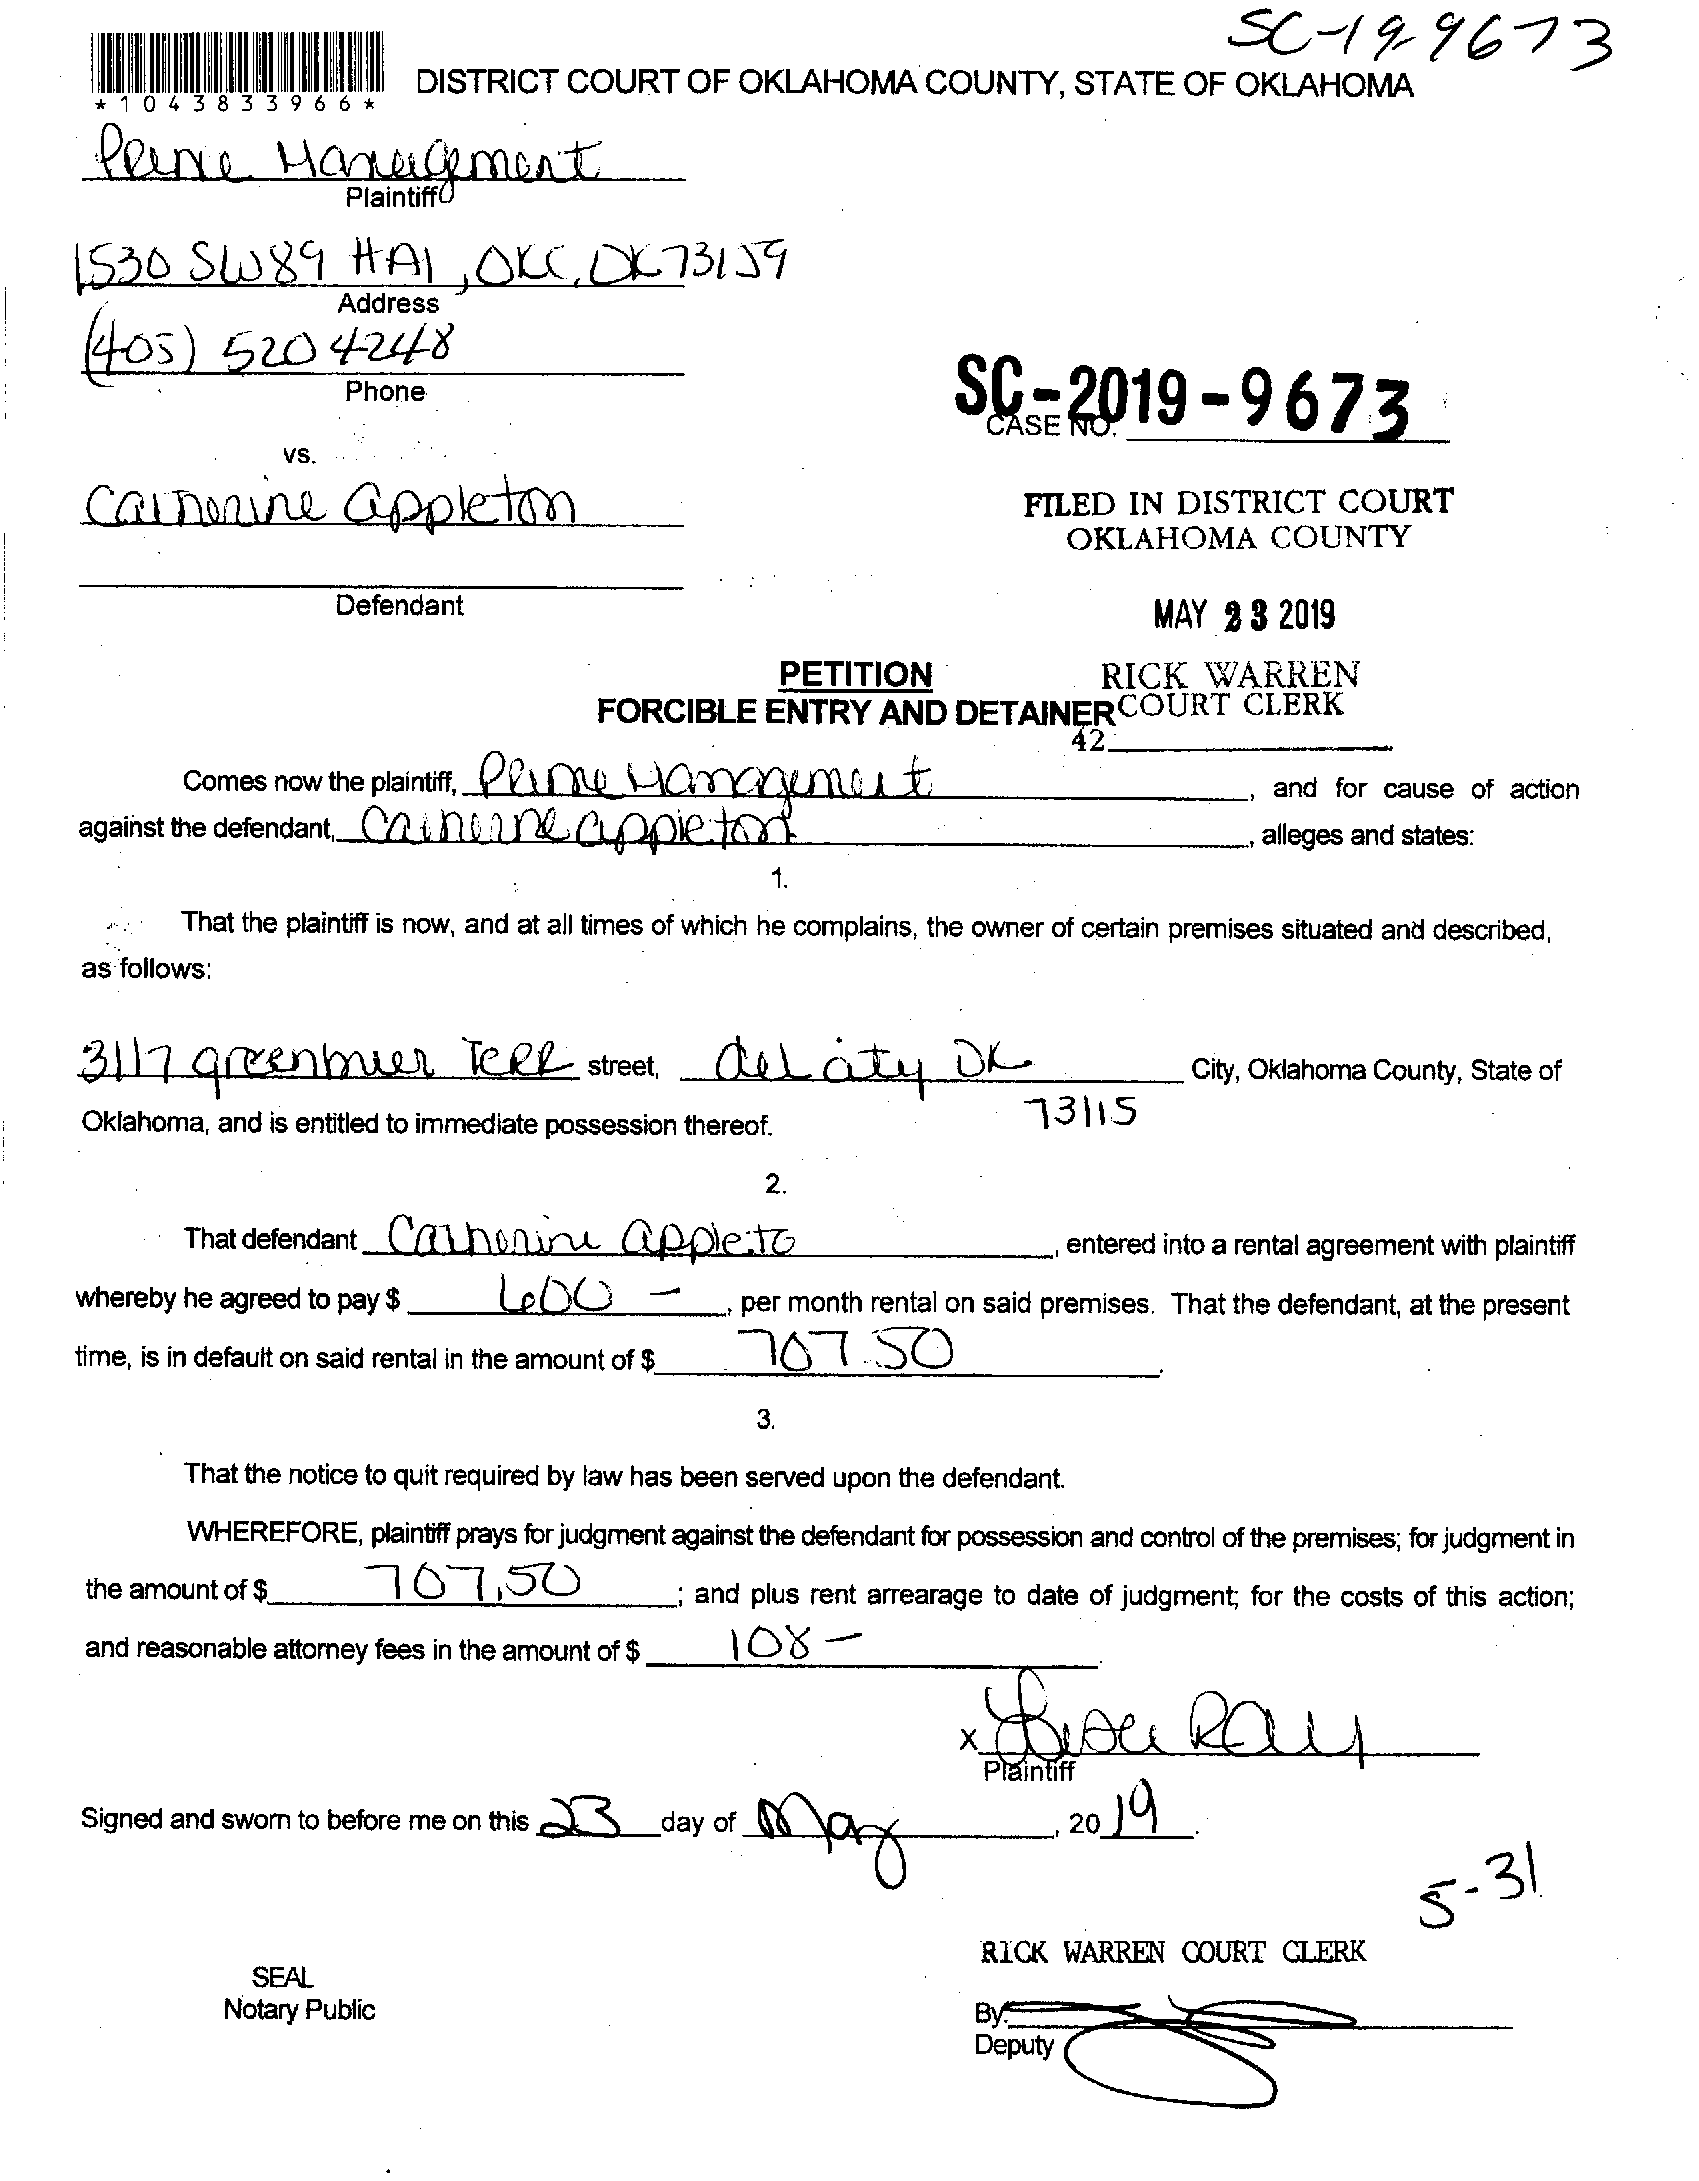 SC-19-9673
*1043833966*
DISTRICT COURT OF OKLAHOMA COUNTY, STATE OF OKLAHOMA
Prime Management
Plaintiff
1530 SW 89 #A1, OKC, OK 73159
Address
(405) 520 4248
Phone
SC-2019-9673
CASE NO.
vs.
Catherine Appleton
FILED IN DISTRICT COURT
OKLAHOMA COUNTY
Defendant
MAY 23 2019
PETITION
RICK WARREN
FORCIBLE ENTRY AND DETAINER
COURT CLERK
42
Comes now the plaintiff, Prime Management, and for cause of action
against the defendant, Catherine Appleton, alleges and states:
1.
That the plaintiff is now, and at all times of which he complains, the owner of certain premises situated and described,
as follows:
3117 greenbrier Terr street, del city OK City, Oklahoma County, State of
73115
Oklahoma, and is entitled to immediate possession thereof.
2.
That defendant Catherine Appleto, entered into a rental agreement with plaintiff
whereby he agreed to pay $ 600 -, per month rental on said premises. That the defendant, at the present
time, is in default on said rental in the amount of $ 707.50.
3.
That the notice to quit required by law has been served upon the defendant.
WHEREFORE, plaintiff prays for judgment against the defendant for possession and control of the premises; for judgment in
the amount of $ 707.50; and plus rent arrearage to date of judgment; for the costs of this action;
and reasonable attorney fees in the amount of $ 108 -.
x Lisa Ray
Plaintiff
Signed and sworn to before me on this 23 day of May, 2019.
5-31
RICK WARREN COURT CLERK
SEAL
Notary Public
By:
Deputy